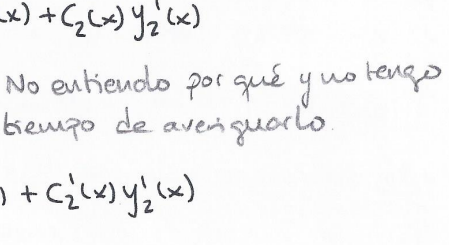 x) + C₂(x) y₂'(x)
No entiendo por qué y no tengo
tiempo de averiguarlo.
) + C₂'(x) y₂'(x)